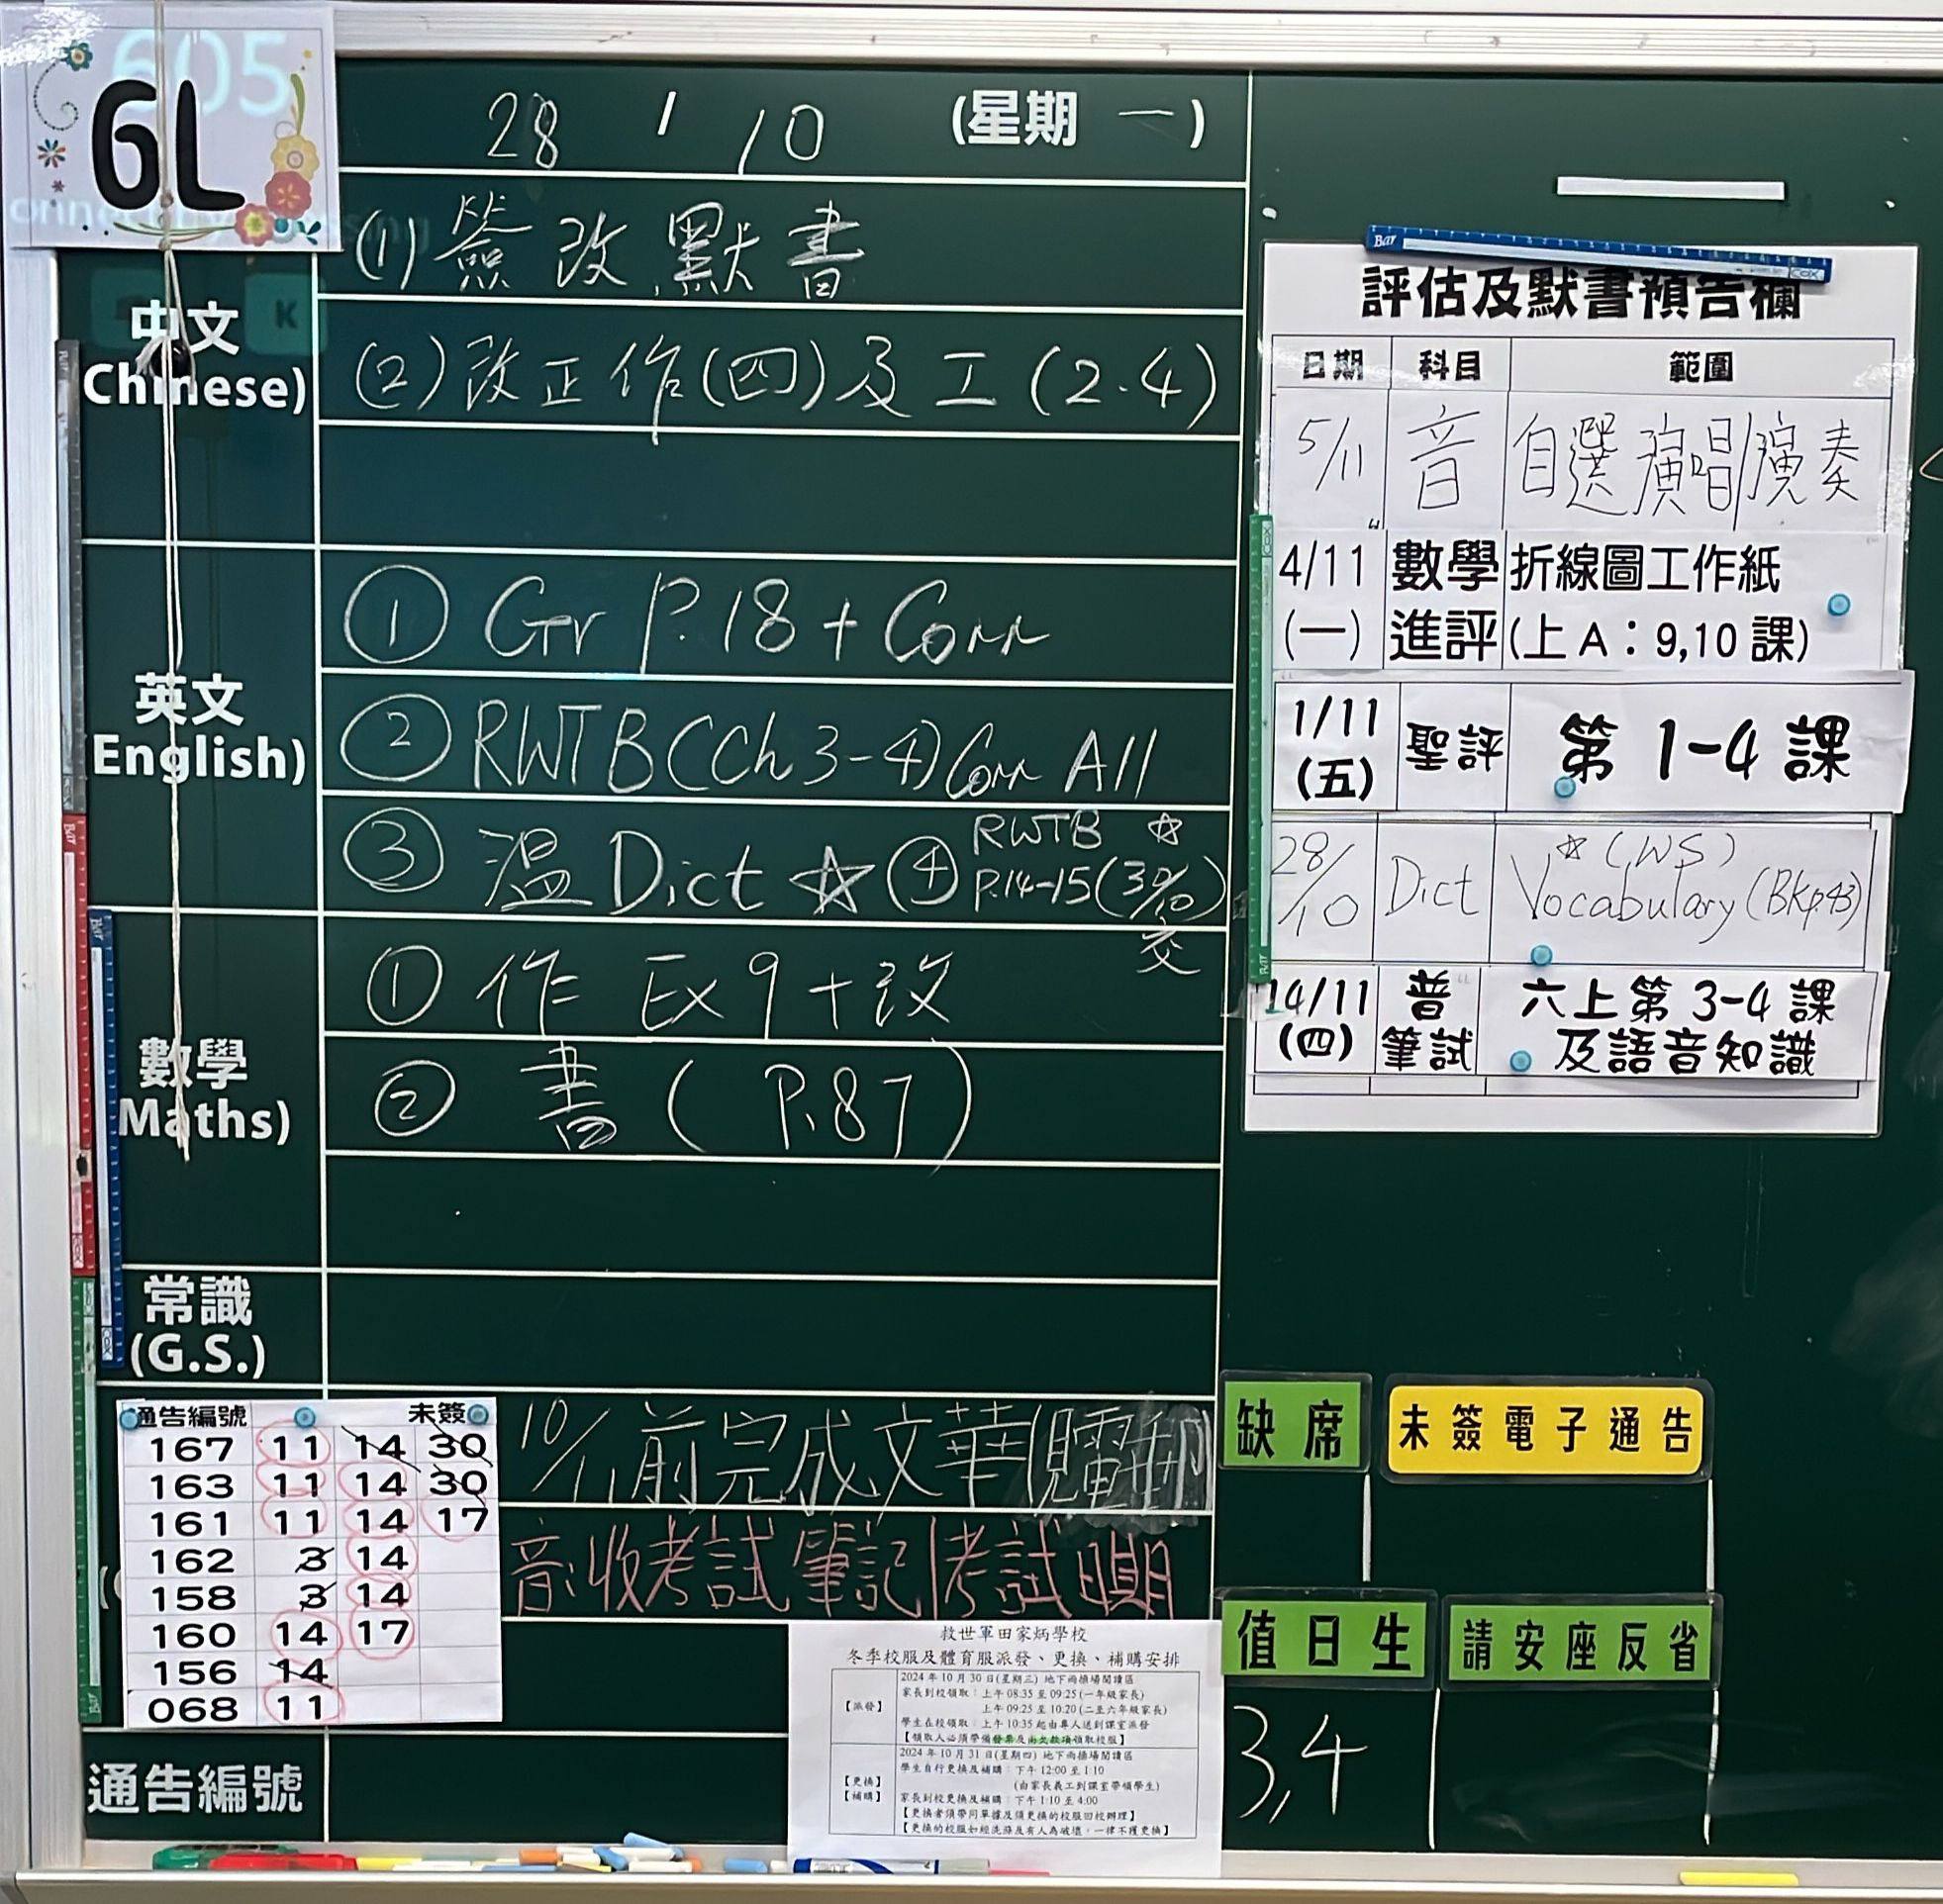 605
6L
28 / 10 (星期 一)
中文
Chinese)
(1) 簽改默書
(2) 改正作(四)及工(2.4)
英文
English)
① Gr P.18 + Corr
② RWTB (Ch 3-4) Corr All
③ 溫 Dict ☆ ④ RWTB ☆
P.14-15 (30/10)
交
數學
Maths)
① 作 Ex 9 + 改
② 書 ( P.87 )
常識
(G.S.)
10/11前完成文華(見電郵)
音:收考試筆記/考試
通告編號 未簽
167 11 14 30
163 11 14 30
161 11 14 17
162 3 14
158 3 14
160 14 17
156 14
068 11
通告編號
救世軍田家炳學校
冬季校服及體育服派發、更換、補購安排
【派發】
2024年10月30日(星期三) 地下雨操場閱讀區
家長到校領取:上午 08:35 至 09:25 (一年級家長)
上午 09:25 至 10:20 (二至六年級家長)
學生在校領取:上午 10:35 起由專人送到課室派發
【領取人必須帶備發票及尚欠款項領取校服】
【更換】
【補購】
2024年10月31日(星期四) 地下雨操場閱讀區
學生自行更換及補購:下午 12:00 至 1:10
(由家長義工到課室帶領學生)
家長到校更換及補購:下午 1:10 至 4:00
【更換者須帶同單據及須更換的校服回校辦理】
【更換的校服如經洗滌及有人為破壞,一律不獲更換】
評估及默書預告欄
日期 科目 範圍
5/11 音 自選演唱/演奏
4/11 數學 折線圖工作紙
(一) 進評 (上 A:9,10 課)
1/11 聖評 第 1-4 課
(五)
28/10 Dict ☆ (WS)
Vocabulary (Bk p.43)
14/11 普 六上第 3-4 課
(四) 筆試 及語音知識
缺席
未簽電子通告
值日生
請安座反省
3,4